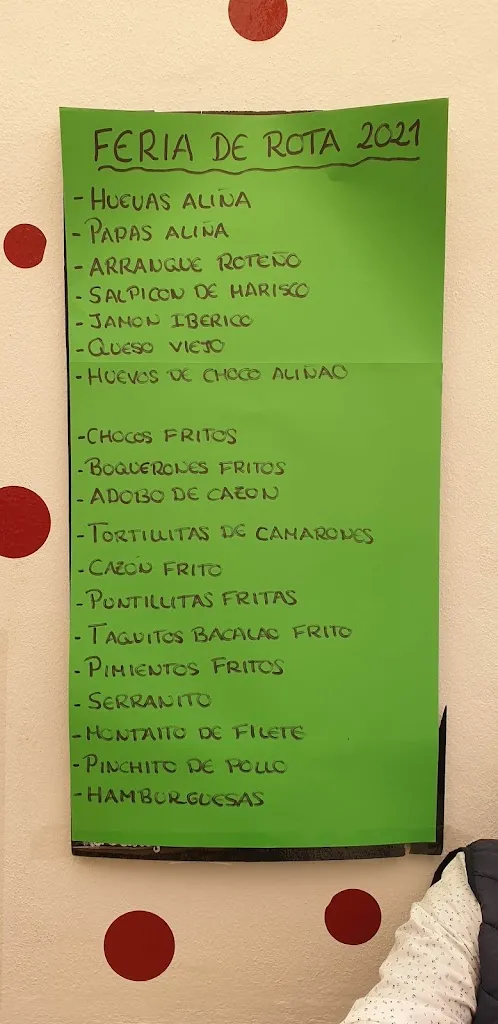 FERIA DE ROTA 2021
- HUEVAS ALIÑA
- PAPAS ALIÑA
- ARRANQUE ROTEÑO
- SALPICON DE MARISCO
- JAMON IBERICO
- QUESO VIEJO
- HUEVOS DE CHOCO ALIÑAO
- CHOCOS FRITOS
- BOQUERONES FRITOS
- ADOBO DE CAZON
- TORTILLITAS DE CAMARONES
- CAZÓN FRITO
- PUNTILLITAS FRITAS
- TAQUITOS BACALAO FRITO
- PIMIENTOS FRITOS
- SERRANITO
- MONTAITO DE FILETE
- PINCHITO DE POLLO
- HAMBURGUESAS